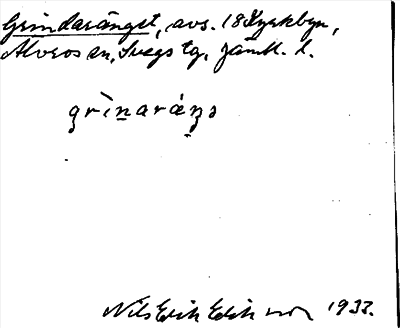 Grindaränget, avs. 18 Kyrkbyn,
Älvros sn, Svegs tg, Jämtl. l.
grìn̲aráŋ̲ə
Nils Erik Erikson 1933.